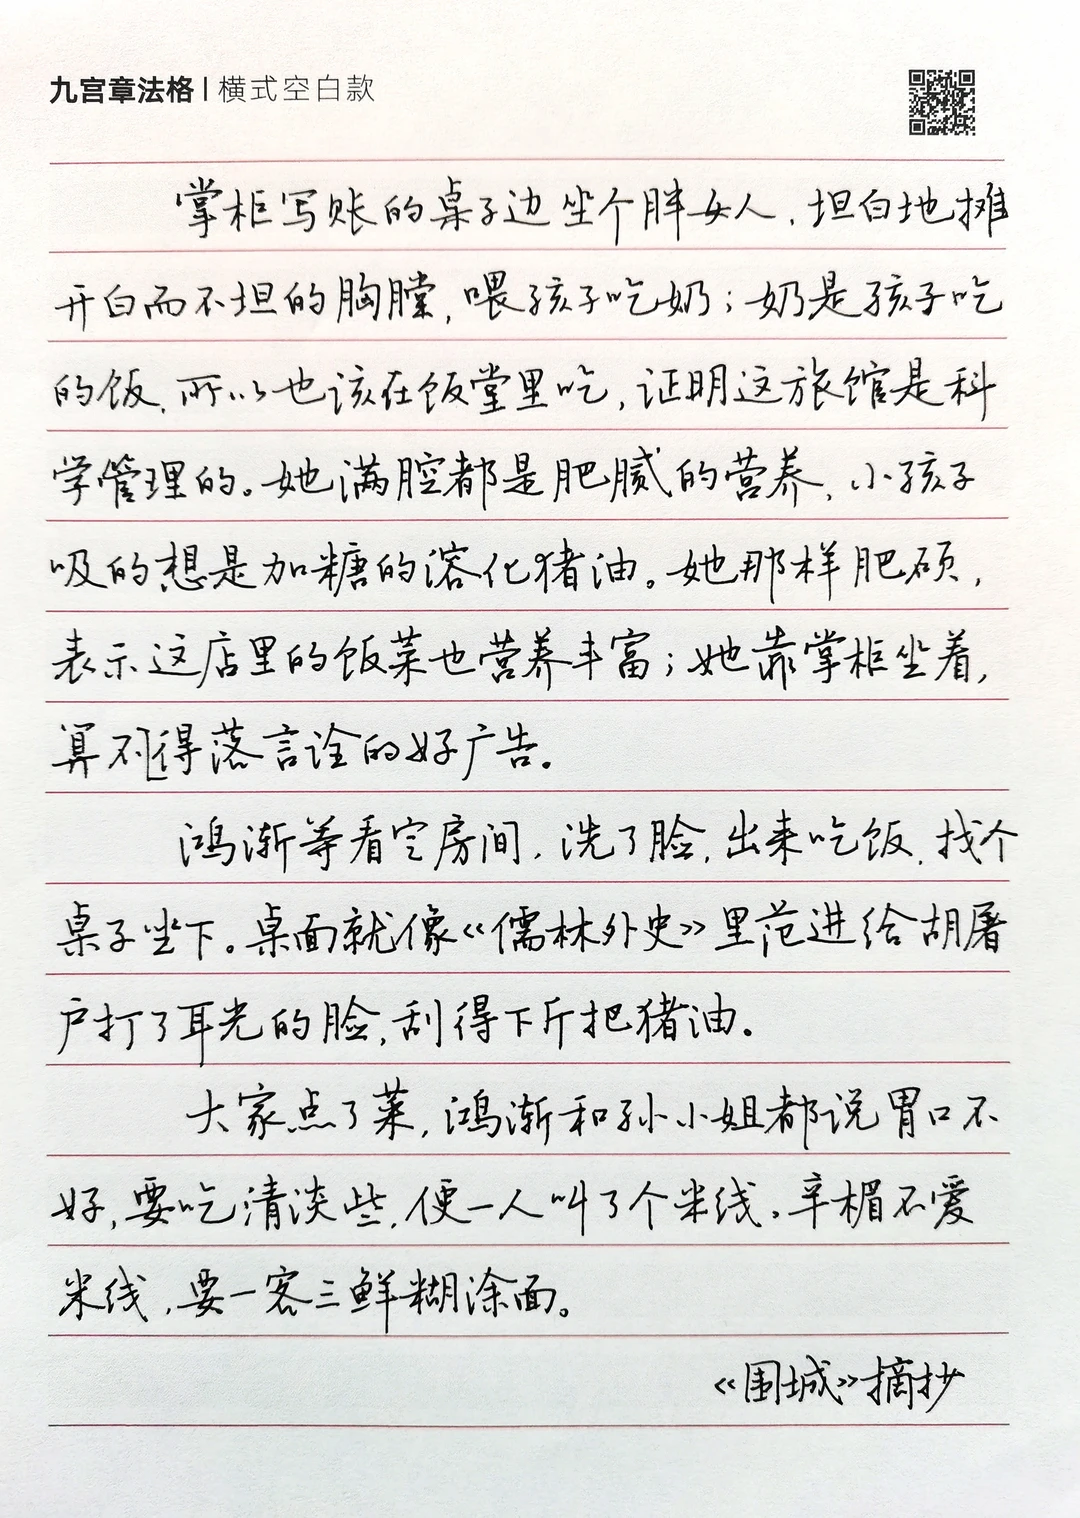 九宫章法格 | 横式空白款
掌柜写账的桌子边坐个胖女人，坦白地摊
开白而不坦的胸膛，喂孩子吃奶；奶是孩子吃
的饭，所以也该在饭堂里吃，证明这旅馆是科
学管理的。她满腔都是肥腻的营养，小孩子
吸的想是加糖的溶化猪油。她那样肥硕，
表示这店里的饭菜也营养丰富；她靠掌柜坐着，
算不得落言诠的好广告。
鸿渐等看定房间，洗了脸，出来吃饭，找个
桌子坐下。桌面就像《儒林外史》里范进给胡屠
户打了耳光的脸，刮得下斤把猪油。
大家点了菜，鸿渐和孙小姐都说胃口不
好，要吃清淡些，便一人叫了个米线。辛楣不爱
米线，要一客三鲜糊涂面。
《围城》摘抄